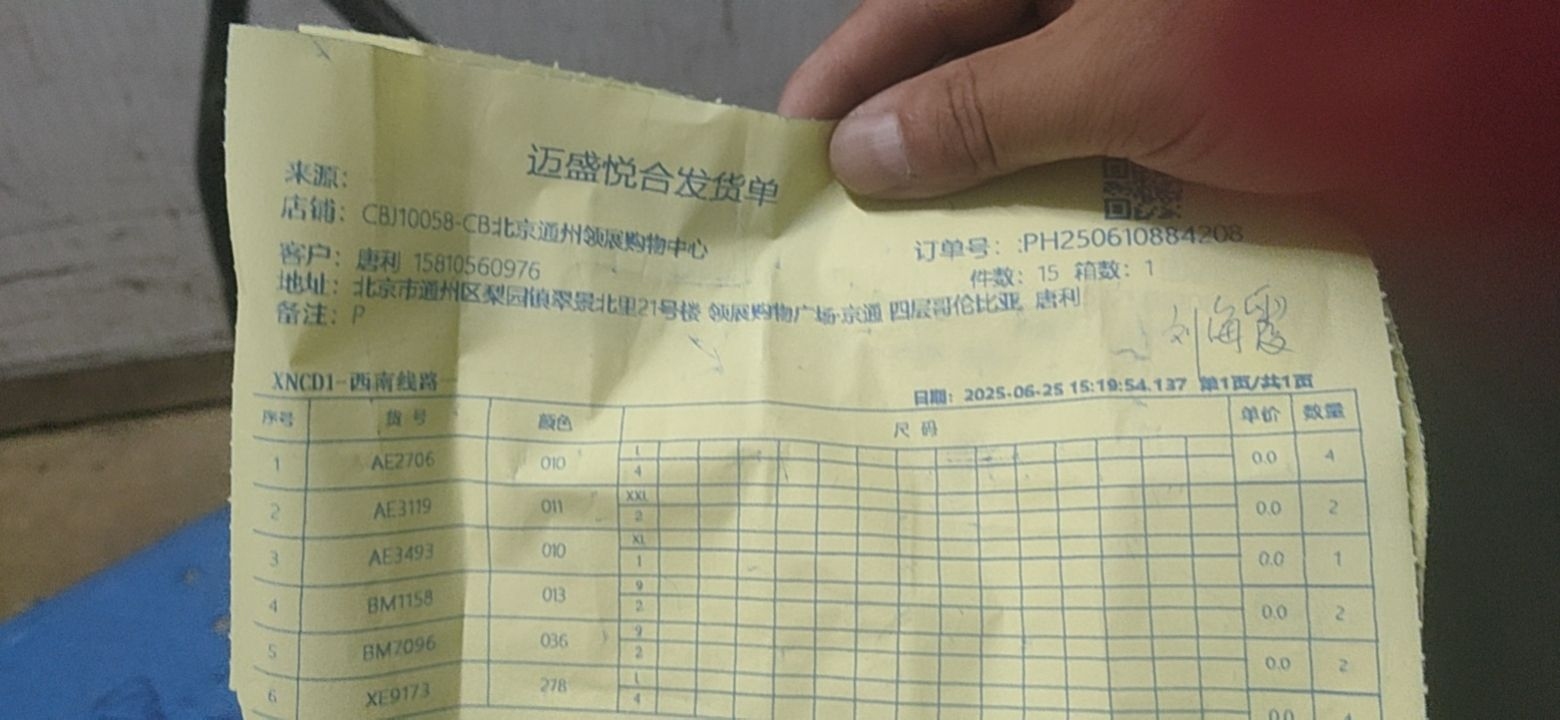 迈盛悦合发货单
来源：
店铺：CBJ10058-CB北京通州领展购物中心
订单号：:PH250610884208
客户：唐利 15810560976
件数：15 箱数：1
地址：北京市通州区梨园镇翠景北里21号楼 领展购物广场·京通 四层哥伦比亚 唐利
备注：P
刘海霞
XNCD1-西南线路
日期：2025-06-25 15:19:54.137 第1页/共1页
序号 货号 颜色 尺码 单价 数量
1 AE2706 010 L 4 0.0 4
2 AE3119 011 XXL 2 0.0 2
3 AE3493 010 XL 1 0.0 1
4 BM1158 013 9 2 0.0 2
5 BM7096 036 9 2 0.0 2
6 XE9173 278 L 4 0.0 4